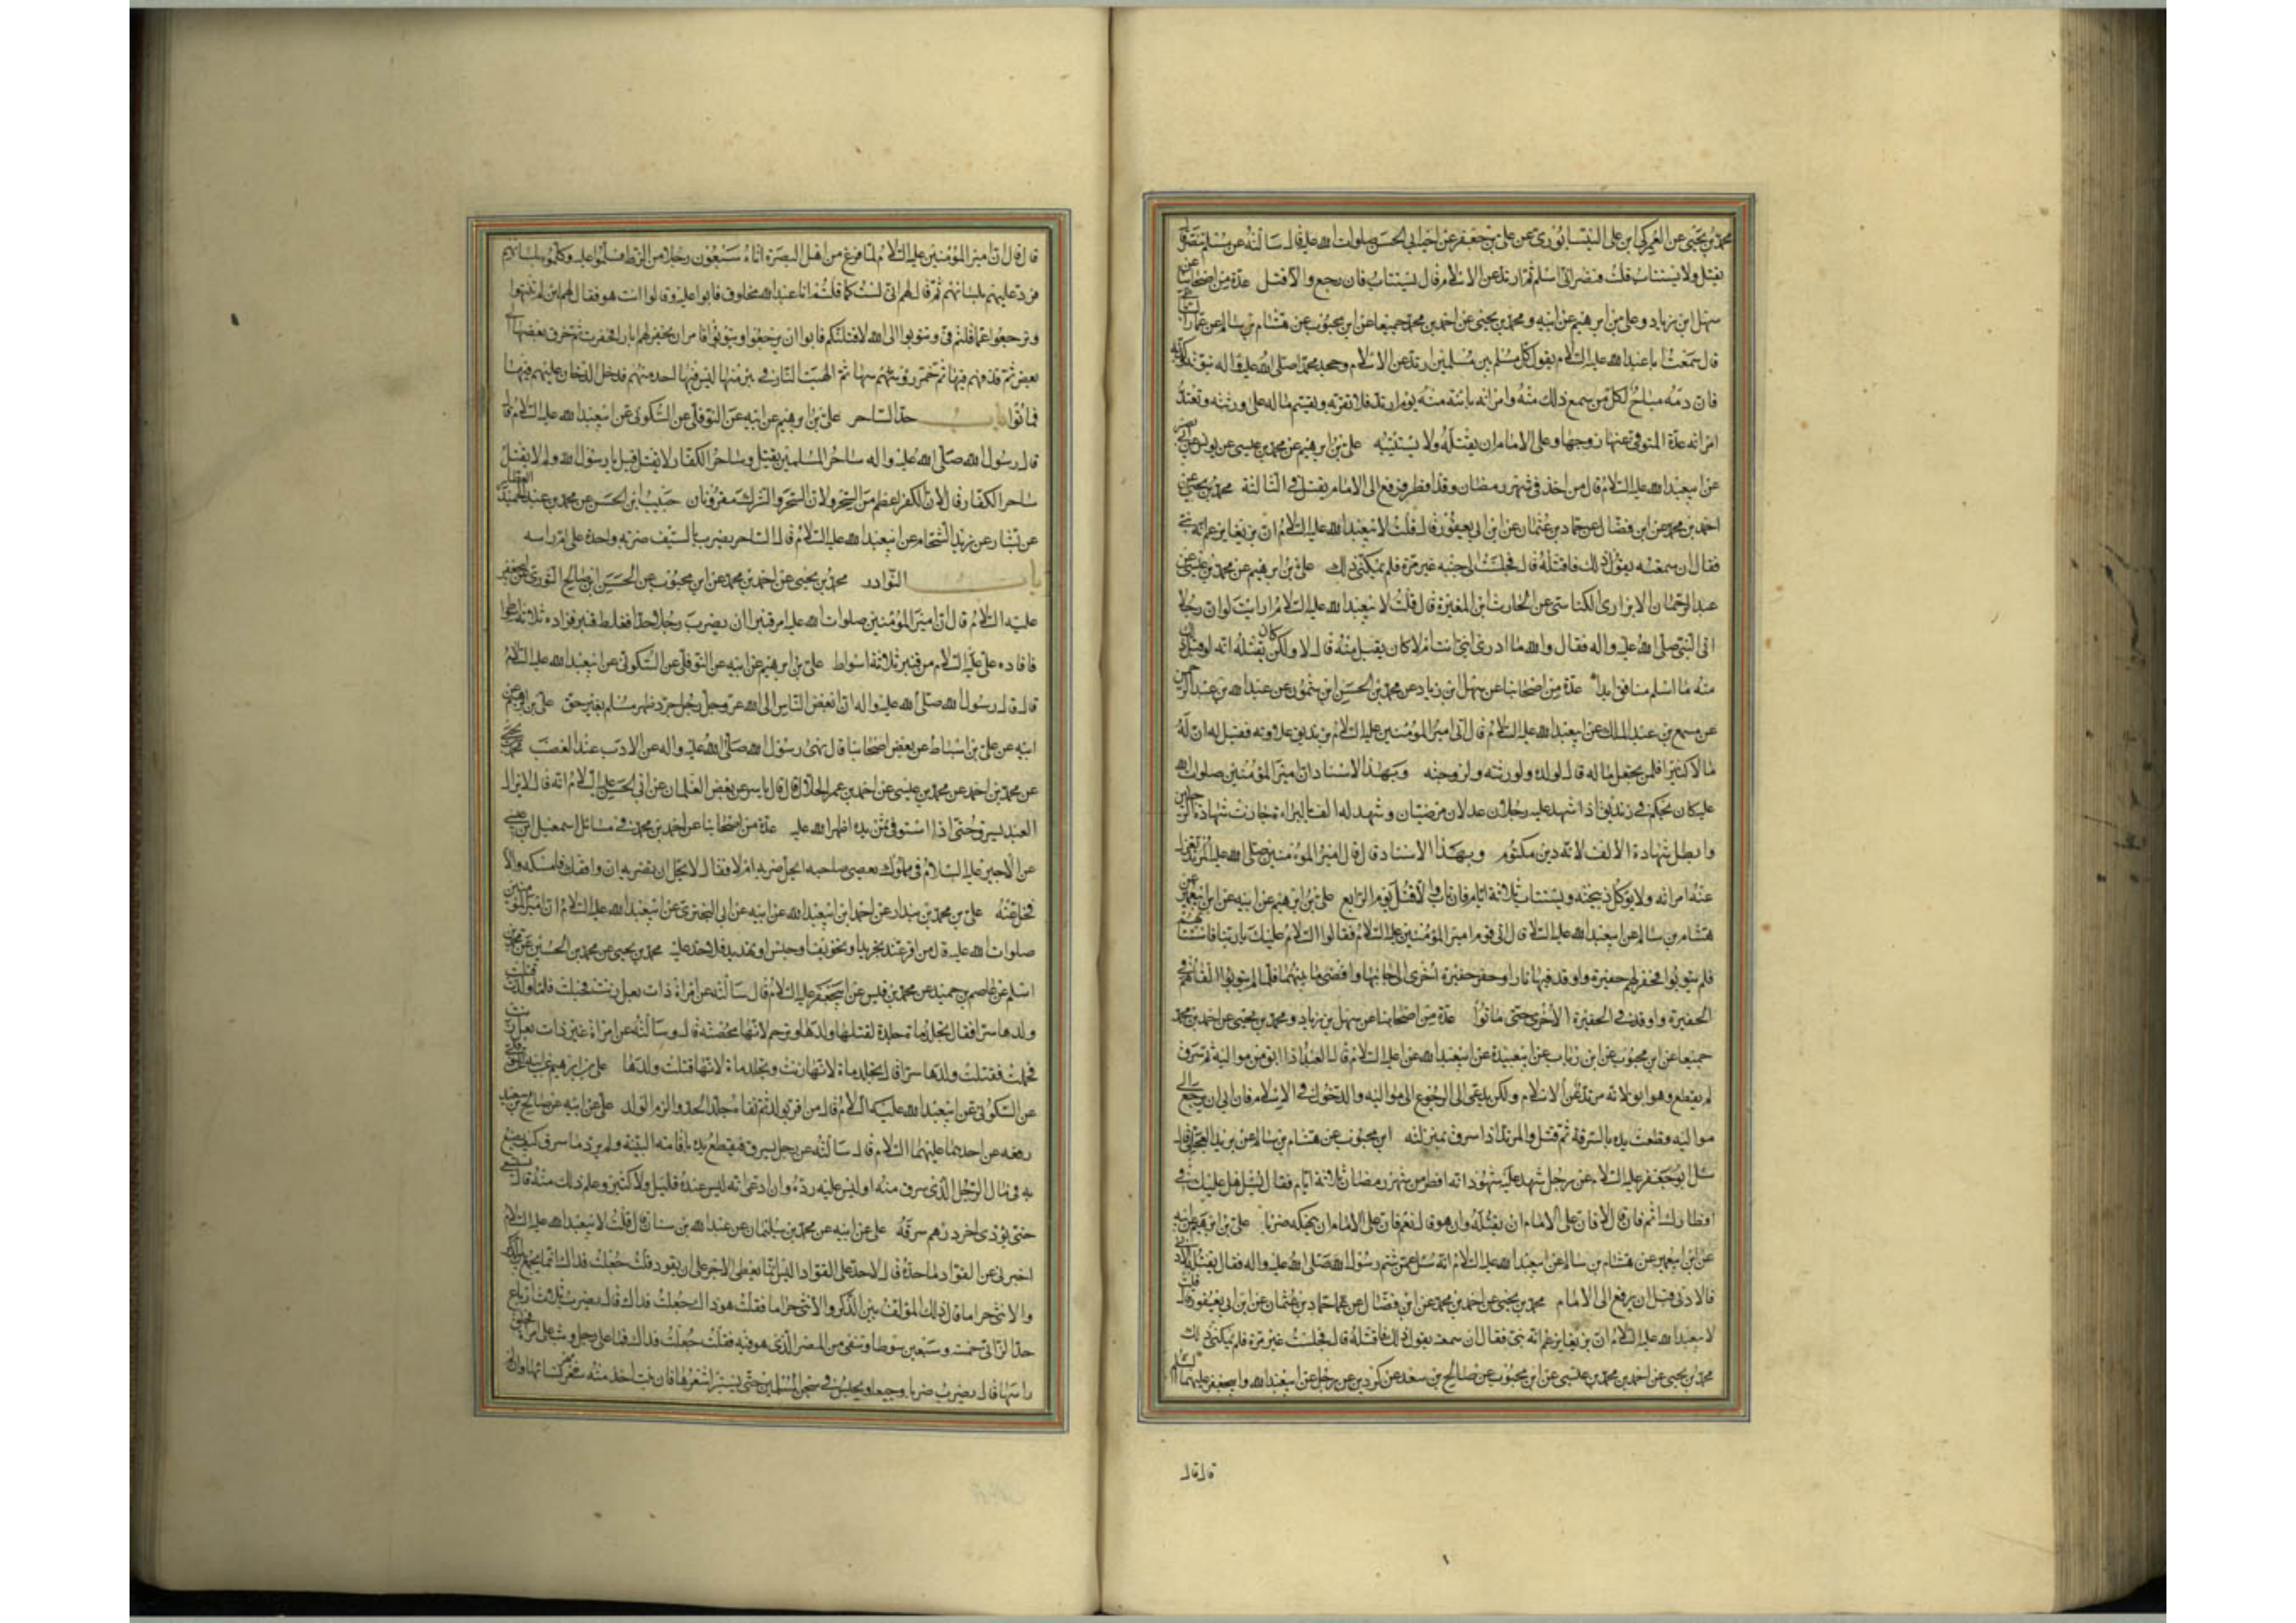 محمد بن يحيى عن العمركي ابن علي النيسابوري عن علي بن جعفر عن اخيه ابي الحسن صلوات الله عليه قال سألته عن مسلم تنصر قال
يقتل ولا يستتاب قلت فنصراني اسلم ثم ارتد عن الاسلام قال يستتاب فان رجع والا قتل عدة من اصحابنا عن
سهل ابن زياد وعلي بن ابرهيم عن ابيه ومحمد بن يحيى عن احمد بن محمد جميعا عن ابن محبوب عن هشام بن سالم عن عمار الساباطي
قال سمعت ابا عبد الله عليه السلام يقول كل مسلم بين مسلمين ارتد عن الاسلام وجحد محمدا صلى الله عليه واله نبوته وكذبه
فان دمه مباح لكل من سمع ذلك منه وامرأته بائنة منه يوم ارتد فلا تقربه ويقسم ماله على ورثته وتعتد
امرأته عدة المتوفى عنها زوجها وعلى الامام ان يقتله ولا يستتيبه علي بن ابرهيم عن محمد بن عيسى عن يونس عن ابي بصير
عن ابيعبد الله عليه السلام قال من اخذ في شهر رمضان وقد افطر فرفع الى الامام يقتل في الثالثة محمد بن يحيى عن
احمد بن محمد عن ابن فضال عن حماد بن عثمان عن ابن ابي يعفور قال قلت لابيعبد الله عليه السلام ان بزيعا يزعم انه نبي
فقال ان سمعته يقول ذلك فاقتله قال فجلست الى جنبه غير مرة فلم يمكني ذلك علي بن ابرهيم عن محمد بن عيسى عن
عبد الرحمان الابزاري الكناسي عن الحارث ابن المغيرة قال قلت لابيعبد الله عليه السلام ارايت لو ان رجلا
اتى النبي صلى الله عليه واله فقال والله ما ادري انبي انت ام لا كان يقبل منه قال لا ولكن كان يقتله انه لو قبل ذلك
منه ما اسلم منافق ابدا عدة من اصحابنا عن سهل ابن زياد عن محمد بن الحسن ابن شمون عن عبد الله بن عبد الرحمن
عن مسمع بن عبد الملك عن ابيعبد الله عليه السلام قال اتى امير المؤمنين عليه السلام بزنديق علاوته فقيل له ان له
مالا كثيرا فلمن يجعل ماله قال لولده ولورثته ولزوجته وبهذا الاسناد ان امير المؤمنين صلوات الله
عليه كان يحكم في زنديق اذا شهد عليه رجلان عدلان مرضيان وشهد له الف بالبراءة جازت شهادة الرجلين
وابطل شهادة الالف لانه دين مكتوم وبهذا الاسناد قال قال امير المؤمنين صلى الله عليه المرتد تعزل
عنه امرأته ولا يؤكل ذبيحته ويستتاب ثلاثة ايام فان تاب والا قتل يوم الرابع علي بن ابرهيم عن ابيه عن ابن ابيعمير عن
هشام بن سالم عن ابيعبد الله عليه السلام قال اتى قوم امير المؤمنين عليه السلام فقالوا السلام عليك يا ربنا فاستتابهم
فلم يتوبوا فحفر لهم حفيرة واوقد فيها نارا وحفر حفيرة اخرى الى جانبها وافضى ما بينهما فلما لم يتوبوا القاهم في
الحفيرة واوقد في الحفيرة الاخرى حتى ماتوا عدة من اصحابنا عن سهل بن زياد ومحمد بن يحيى عن احمد بن محمد
جميعا عن ابن محبوب عن ابن رئاب عن ابيعبيدة عن ابيعبد الله عليه السلام قال العبد اذا ابق من مواليه ثم سرق
لم يقطع وهو ابق لانه مرتد عن الاسلام ولكن يدعى الى الرجوع الى مواليه والدخول في الاسلام فان ابى ان يرجع الى
مواليه قطعت يده بالسرقة ثم قتل والمرتد اذا سرق بمنزلته ابن محبوب عن هشام بن سالم عن بريد العجلي قال
سئل ابو جعفر عليه السلام عن رجل شهد عليه شهود انه افطر من شهر رمضان ثلاثة ايام فقال يسئل هل عليك في
افطارك اثم فان قال لا فان على الامام ان يقتله وان هو قال نعم فان على الامام ان ينهكه ضربا علي بن ابرهيم عن ابيه
عن ابن ابيعمير عن هشام بن سالم عن ابيعبد الله عليه السلام انه سئل عمن شتم رسول الله صلى الله عليه واله فقال يقتله الادنى
فالادنى قبل ان يرفع الى الامام محمد بن يحيى عن احمد بن محمد عن ابن فضال عن حماد بن عثمان عن ابن ابي يعفور قال قلت
لابيعبد الله عليه السلام ان بزيعا يزعم انه نبي فقال ان سمعته يقول ذلك فاقتله قال فجلست غير مرة فلم يمكني ذلك
محمد بن يحيى عن احمد بن محمد بن عيسى عن ابن محبوب عن صالح بن سهد عن كردين عن رجل عن ابيعبد الله وابيجعفر عليهما السلم
قال قال
قال قال ان امير المؤمنين عليه السلام لما فرغ من اهل البصرة اتاه سبعون رجلا من الزط فسلموا عليه وكلموه بلسانهم
فرد عليهم بلسانهم ثم قال لهم اني لست كما قلتم انا عبد الله مخلوق فابوا عليه وقالوا انت هو فقال لهم لئن لم تنتهوا
وترجعوا عما قلتم في وتتوبوا الى الله لاقتلنكم فابوا ان يرجعوا ويتوبوا فامر ان يحفر لهم ابار فحفرت ثم خرق بعضها الى
بعض ثم قذفهم فيها ثم خمر رؤسها ثم الهبت النار في بئر منها ليس فيها احد منهم فدخل الدخان عليهم فيها
فماتوا باب حد الساحر علي بن ابرهيم عن ابيه عن النوفلي عن السكوني عن ابيعبد الله عليه السلام قال
قال رسول الله صلى الله عليه واله ساحر المسلمين يقتل وساحر الكفار لا يقتل قيل يا رسول الله ولم لا يقتل
ساحر الكفار قال لان الكفر اعظم من السحر ولان السحر والشرك مقرونان حبيب ابن الحسن عن محمد بن عبد الحميد العطار
عن بشار عن زيد الشحام عن ابيعبد الله عليه السلام قال الساحر يضرب بالسيف ضربة واحدة على ام راسه
باب النوادر محمد بن يحيى عن احمد بن محمد عن ابن محبوب عن الحسن ابن صالح الثوري عن ابيجعفر
عليه السلام قال ان امير المؤمنين صلوات الله عليه امر قنبرا ان يضرب رجلا حدا فغلط قنبر فزاده ثلاثة اسواط
فاقاده علي عليه السلام من قنبر ثلاثة اسواط علي بن ابرهيم عن ابيه عن النوفلي عن السكوني عن ابيعبد الله عليه السلام
قال قال رسول الله صلى الله عليه واله ان ابغض الناس الى الله عز وجل رجل جرد ظهر مسلم بغير حق علي بن ابرهيم عن
ابيه عن علي بن اسباط عن بعض اصحابنا قال نهى رسول الله صلى الله عليه واله عن الادب عند الغضب محمد بن يحيى
عن محمد بن احمد عن محمد بن عيسى عن احمد بن عمر الحلال قال قال ياسر عن بعض الغلمان عن ابي الحسن عليه السلام انه قال لا يزال
العبد يسرق حتى اذا استوفى ثمن يده اظهر الله عليه عدة من اصحابنا عن احمد بن محمد في مسائل اسمعيل ابن عيسى
عن الاخير عليه السلام في مملوك يعصي صاحبه ايحل ضربه ام لا فقال لا يحل ان يضربه ان وافقك فامسكه والا
فخل عنه علي بن محمد بن بندار عن احمد ابن ابيعبد الله عن ابيه عن ابي البختري عن ابيعبد الله عليه السلام ان امير المؤمنين
صلوات الله عليه قال من اقر عند تجريد او تخويف او حبس او تهديد فلا حد عليه محمد بن يحيى عن محمد بن الحسين عن محمد بن
اسلم عن عاصم بن حميد عن محمد بن قيس عن ابيجعفر عليه السلام قال سألته عن امرأة ذات بعل زنت فحبلت فلما ولدت قتلت
ولدها سرا فقال تجلد مائة جلدة لقتلها ولدها وترجم لانها محصنة قال وسألته عن امرأة غير ذات بعل زنت
فحملت فقتلت ولدها سرا قال تجلد مائة لانها زنت وتجلد مائة لانها قتلت ولدها علي بن ابرهيم عن ابيه عن النوفلي
عن السكوني عن ابيعبد الله عليه السلام قال من اقر بولد ثم نفاه جلد الحد والزم الولد علي عن ابيه عن صالح بن سعيد
رفعه عن احدهما عليهما السلام قال سألته عن رجل يسرق فتقطع يده باقامة البينة ولم يرد ما سرق كيف يصنع
به في مال الرجل الذي سرق منه او ليس عليه رده وان ادعى انه ليس عنده قليل ولا كثير وعلم ذلك منه قال يستسعى
حتى يؤدي اخر درهم سرقه علي عن ابيه عن محمد بن سليمان عن عبد الله بن سنان قال قلت لابيعبد الله عليه السلام
اخبرني عن القواد ما حده قال لا حد على القواد اليس انما يعطى الاجر على ان يقود قلت جعلت فداك انما يجمع بين الذكر
والانثى حراما قال ذلك المؤلف بين الذكر والانثى حراما فقلت هو ذاك جعلت فداك قال يضرب ثلاثة ارباع
حد الزاني خمسة وسبعين سوطا وينفى من المصر الذي هو فيه فقلت جعلت فداك فما على رجل وثب على امرأة فحلق
راسها قال يضرب ضربا وجيعا ويحبس في سجن المسلمين حتى يستبرا شعرها فان نبت اخذ منه مهر نسائها وان لم